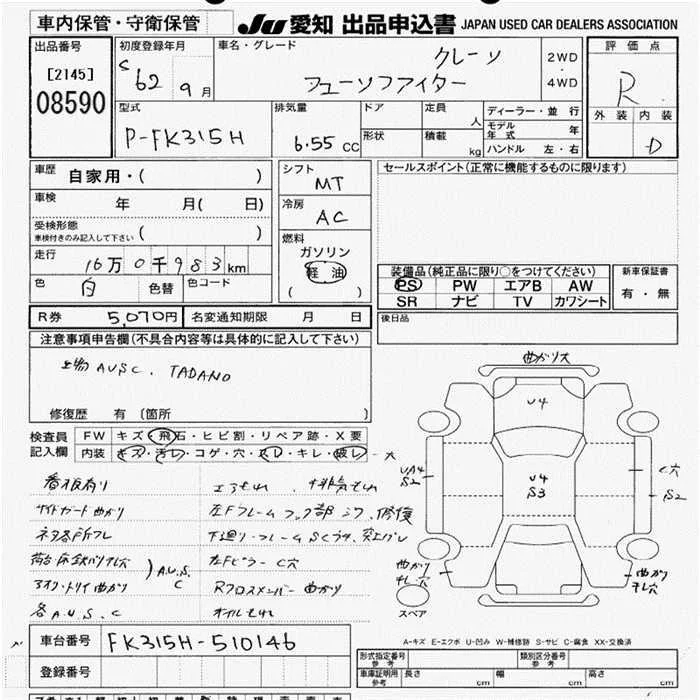 車内保管・守衛保管
JU 愛知 出品申込書 JAPAN USED CAR DEALERS ASSOCIATION
出品番号
[2145]
08590
初度登録年月
S 62 9月
車名・グレード
クレーン
フューソファイター
2WD
・
4WD
評価点
R
外装 内装
D
型式
P-FK315H
排気量
6.55 CC
ドア
形状
定員
人
積載
kg
ディーラー・並 行
モデル年式 年
ハンドル 左・右
車歴
自家用・( )
車検
年 月( 日)
受検形態
車検付きのみ記入して下さい ( )
走行
16万0千983km
色 白 色替 色コード
シフト
MT
冷房
AC
燃料
ガソリン
軽油
( )
セールスポイント(正常に機能するものに限ります)
装備品(純正品に限り○をつけてください)
PS PW エアB AW
SR ナビ TV カワシート
新車保証書
有・無
R券 5,070円 名変通知期限 月 日
後日品
注意事項申告欄(不具合内容等は具体的に記入して下さい)
上物 AUSC. TADANO
修復歴 有 〔箇所 〕
検査員
記入欄
FW キズ・飛石・ヒビ割・リペア跡・X要
内装 キズ・汚レ・コゲ・穴・スレ・キレ・破レ・大
看板有り
エアもれ、排気もれ
サイドガード曲がり
左Fフレームフック部シワ、修復
ネタ各所フレ
荷台床鉄バリチレ穴
左Fピラー C穴
A.U.S.C
Rクロスメンバー曲がり
各A.U.S.C
オイルもれ
曲がり大
U4
U4
S3
UA4
S2
C穴
S2
曲がり
チレ穴
曲がり
チレ穴
スペア
A-キズ E-エクボ U-凹み W-補修跡 S-サビ C-腐食 XX-交換済
車台番号 FK315H-510146
登録番号
形式指定番号
参考
類別区分番号
参考
車庫証明用
参考
長さ cm 幅 cm 高さ cm